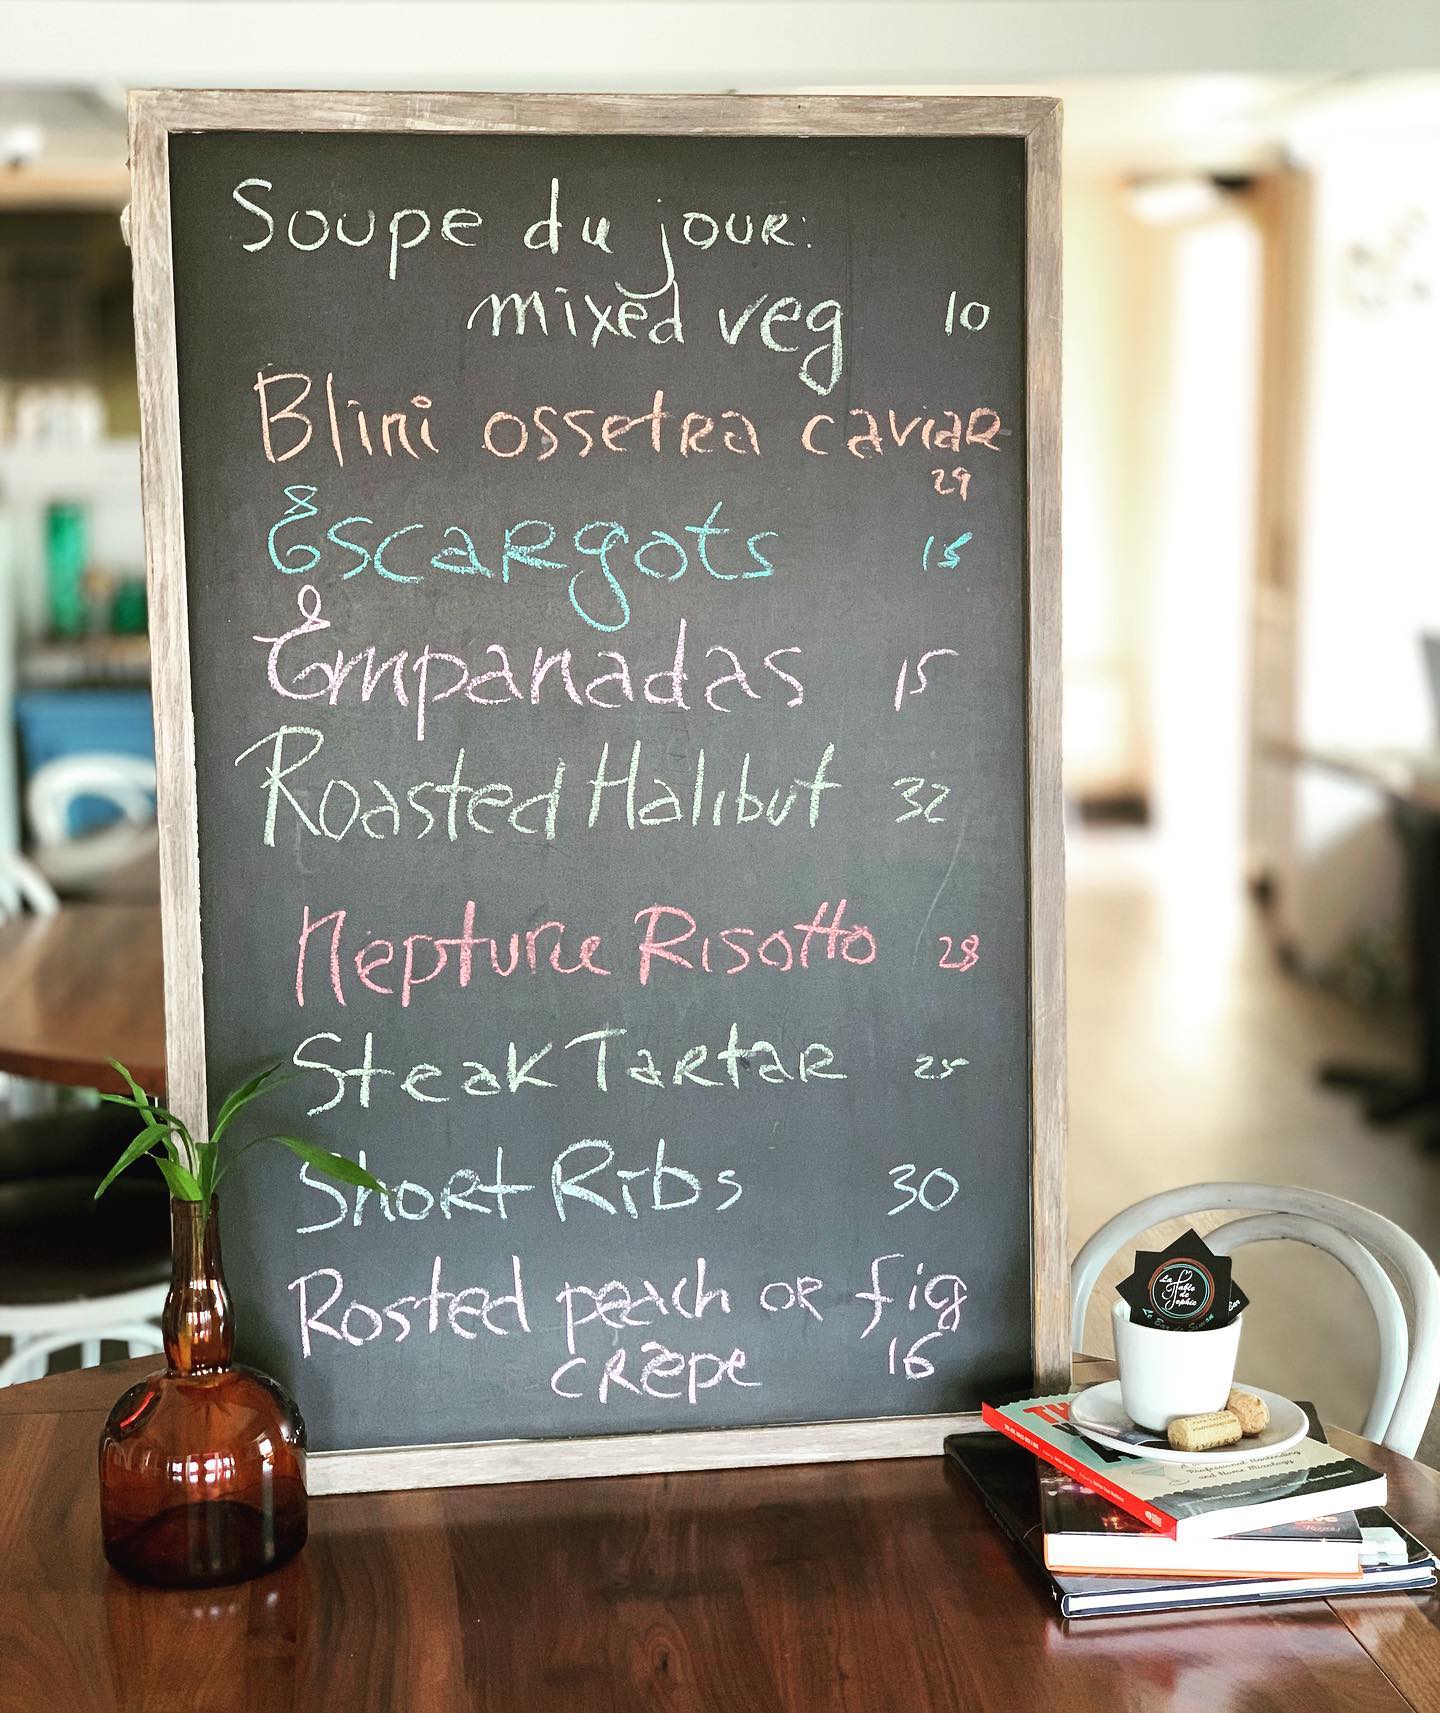 Soupe du jour:
mixed veg 10
Blini ossetra caviar
29
Escargots 15
Empanadas 15
Roasted Halibut 32
Neptune Risotto 28
Steak Tartar 25
Short Ribs 30
Rosted peach or fig
crêpe 16
La
Table
de
Sophie
Le Bar de Simon
Professional Bartending
and Home Mixology